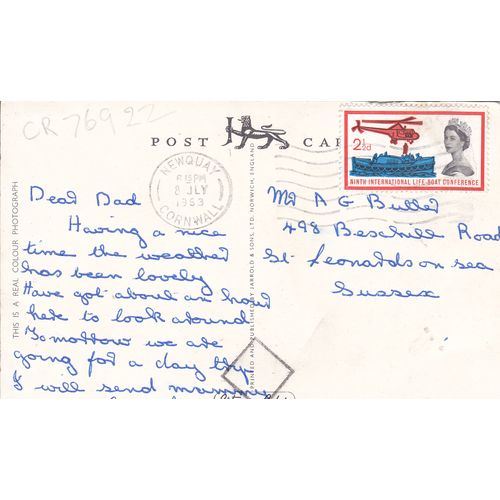 CR 769 22
POST CAR
NEWQUAY
6 15 PM
8 JLY
1963
CORNWALL
2½d
NINTH INTERNATIONAL LIFE-BOAT CONFERENCE
THIS IS A REAL COLOUR PHOTOGRAPH
PRINTED AND PUBLISHED BY JARROLD & SONS, LTD. NORWICH, ENGLAND
Dear Dad
Having a nice
time the weather
has been lovely
Have got about an hour
here to look around
Tomorrow we are
going for a day trip
I will send mummy
Mr A G Butler
498 Bexhill Road
St Leonards on sea
Sussex